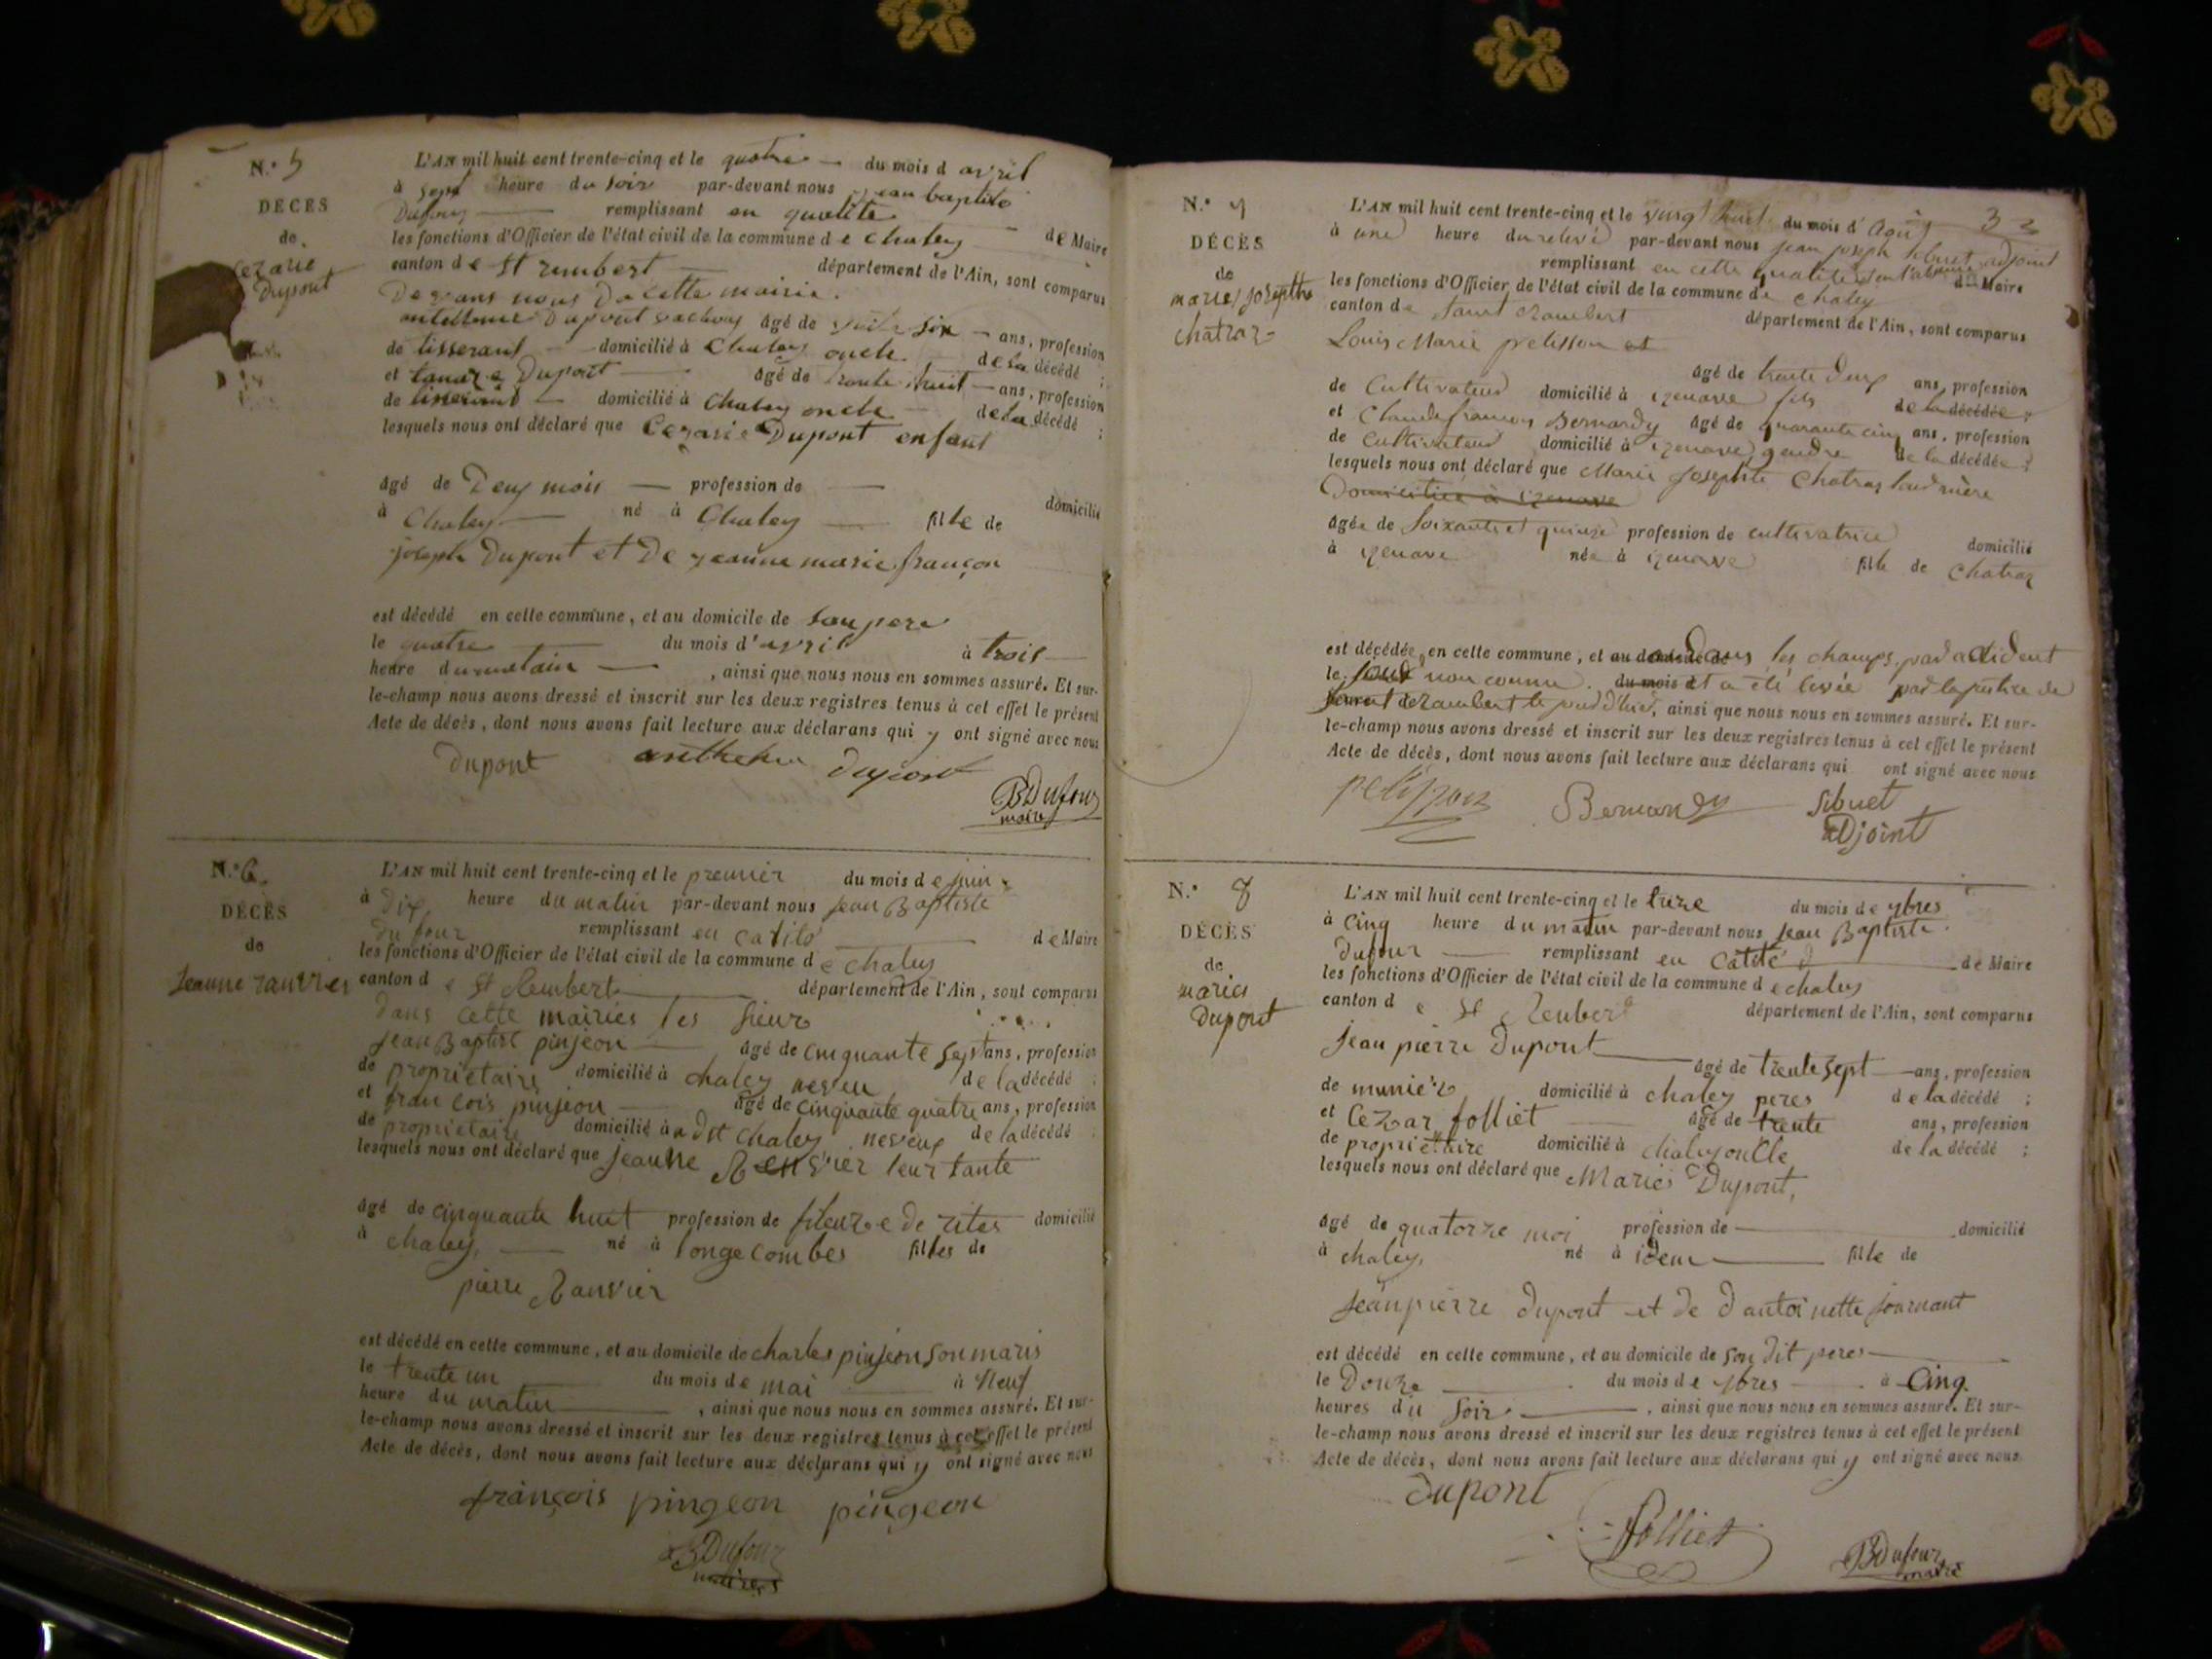 N.° 5
DÉCÈS
de
cezarie
Dupont
L'AN mil huit cent trente-cinq et le quatre du mois d avril
à sept heure du soir par-devant nous jean baptiste
Dufour remplissant en qualité de Maire
les fonctions d'Officier de l'état civil de la commune d e chaley
canton d e St rembert département de l'Ain, sont comparus
Devans nous Da cette mairie.
Dupont âgé de six ans, profession
de tisserant domicilié à Chaley oncle de la décédé ;
et Dupont âgé de trente huit ans, profession
de tisserand domicilié à Chaley oncle de la décédé ;
lesquels nous ont déclaré que Cezarie Dupont enfant
âgé de Deux mois profession de domicilié
à Chaley né à Chaley fille de
joseph Dupont et De jeanne marie françon
est décédé en cette commune, et au domicile de son pere
le quatre du mois d'avril à trois
heure du matain , ainsi que nous nous en sommes assuré. Et sur-
le-champ nous avons dressé et inscrit sur les deux registres tenus à cet effet le présent
Acte de décès, dont nous avons fait lecture aux déclarans qui y ont signé avec nous
Dupont anthelme Dupont
BDufour
maire
N.° 6
DÉCÈS
de
Jeanne ranvier
L'AN mil huit cent trente-cinq et le premier du mois d e juin
à Dix heure du matin par-devant nous Jean Baptiste
Dufour remplissant en calité de Maire
les fonctions d'Officier de l'état civil de la commune d e chaley
canton d e St Rembert département de l'Ain, sont comparus
Dans cette mairies les sieur
Jean Baptist pinjeon âgé de cinquante sept ans, profession
de propriétaire domicilié à chaley neveu de la décédé ;
et francois pinjeon âgé de cinquante quatre ans, profession
de propriétaire domicilié à a dit chaley neveux de la décédé ;
lesquels nous ont déclaré que jeanne Renvier leur tante
âgé de cinquante huit profession de fileuze de rites domicilié
à chaley, né à longecombes filles de
pierre Ranvier
est décédé en cette commune, et au domicile de charles pinjeon son maris
le trente un du mois de mai à Neuf
heure du matin , ainsi que nous nous en sommes assuré. Et sur-
le-champ nous avons dressé et inscrit sur les deux registres tenus à cet effet le présent
Acte de décès, dont nous avons fait lecture aux déclarans qui y ont signé avec nous
françois pingeon pingeon
BDufour
maires
33
N.° 7
DÉCÈS
de
marie josephte
chatraz
L'AN mil huit cent trente-cinq et le vingt huit du mois d' Août
à une heure du relevé par-devant nous jean joseph sibuet adjoint
remplissant en cette qualité en l'absence du Maire
les fonctions d'Officier de l'état civil de la commune de chaley
canton de saint rambert département de l'Ain, sont comparus
Louis Marie pelisson et
âgé de trente deux ans, profession
de Cultivateur domicilié à izenave fils de la décédée ;
et Claude françois Bernardy âgé de quarante cinq ans, profession
de cultivateur domicilié à izenave gendre de la décédée ;
lesquels nous ont déclaré que Marie Josephte Chatraz leur mère
Domiciliée à izenave
âgée de soixante et quinze profession de cultivatrice domicilié
à izenave née à izenave fille de chatraz
est décédée, en cette commune, et au domicile de dans les champs par accident
le jour non connu. du mois d et a été levée par la justice de
, ainsi que nous nous en sommes assuré. Et sur-
le-champ nous avons dressé et inscrit sur les deux registres tenus à cet effet le présent
Acte de décès, dont nous avons fait lecture aux déclarans qui ont signé avec nous
pelisson Bernardy Sibuet
adjoint
N.° 8
DÉCÈS
de
maries
Dupont
L'AN mil huit cent trente-cinq et le treze du mois de 7bres
à cinq heure du matin par-devant nous jean Baptiste
Dufour remplissant en calité de Maire
les fonctions d'Officier de l'état civil de la commune d e chaley
canton d e St Renbert département de l'Ain, sont comparus
jean pierre Dupont âgé de trente sept ans, profession
de munier domicilié à chaley peres de la décédé ;
et Cezar folliet âgé de trente ans, profession
de propriétaire domicilié à chaley oncle de la décédé ;
lesquels nous ont déclaré que Maries Dupont,
âgé de quatorze moi profession de domicilié
à chaley, né à idem fille de
Jean pierre Dupont et de d'antoinette journant
est décédé en cette commune, et au domicile de son dit peres
le Douze du mois d e 7bres à Cinq
heures du soir , ainsi que nous nous en sommes assuré. Et sur-
le-champ nous avons dressé et inscrit sur les deux registres tenus à cet effet le présent
Acte de décès, dont nous avons fait lecture aux déclarans qui y ont signé avec nous
Dupont
folliet
BDufour
maire